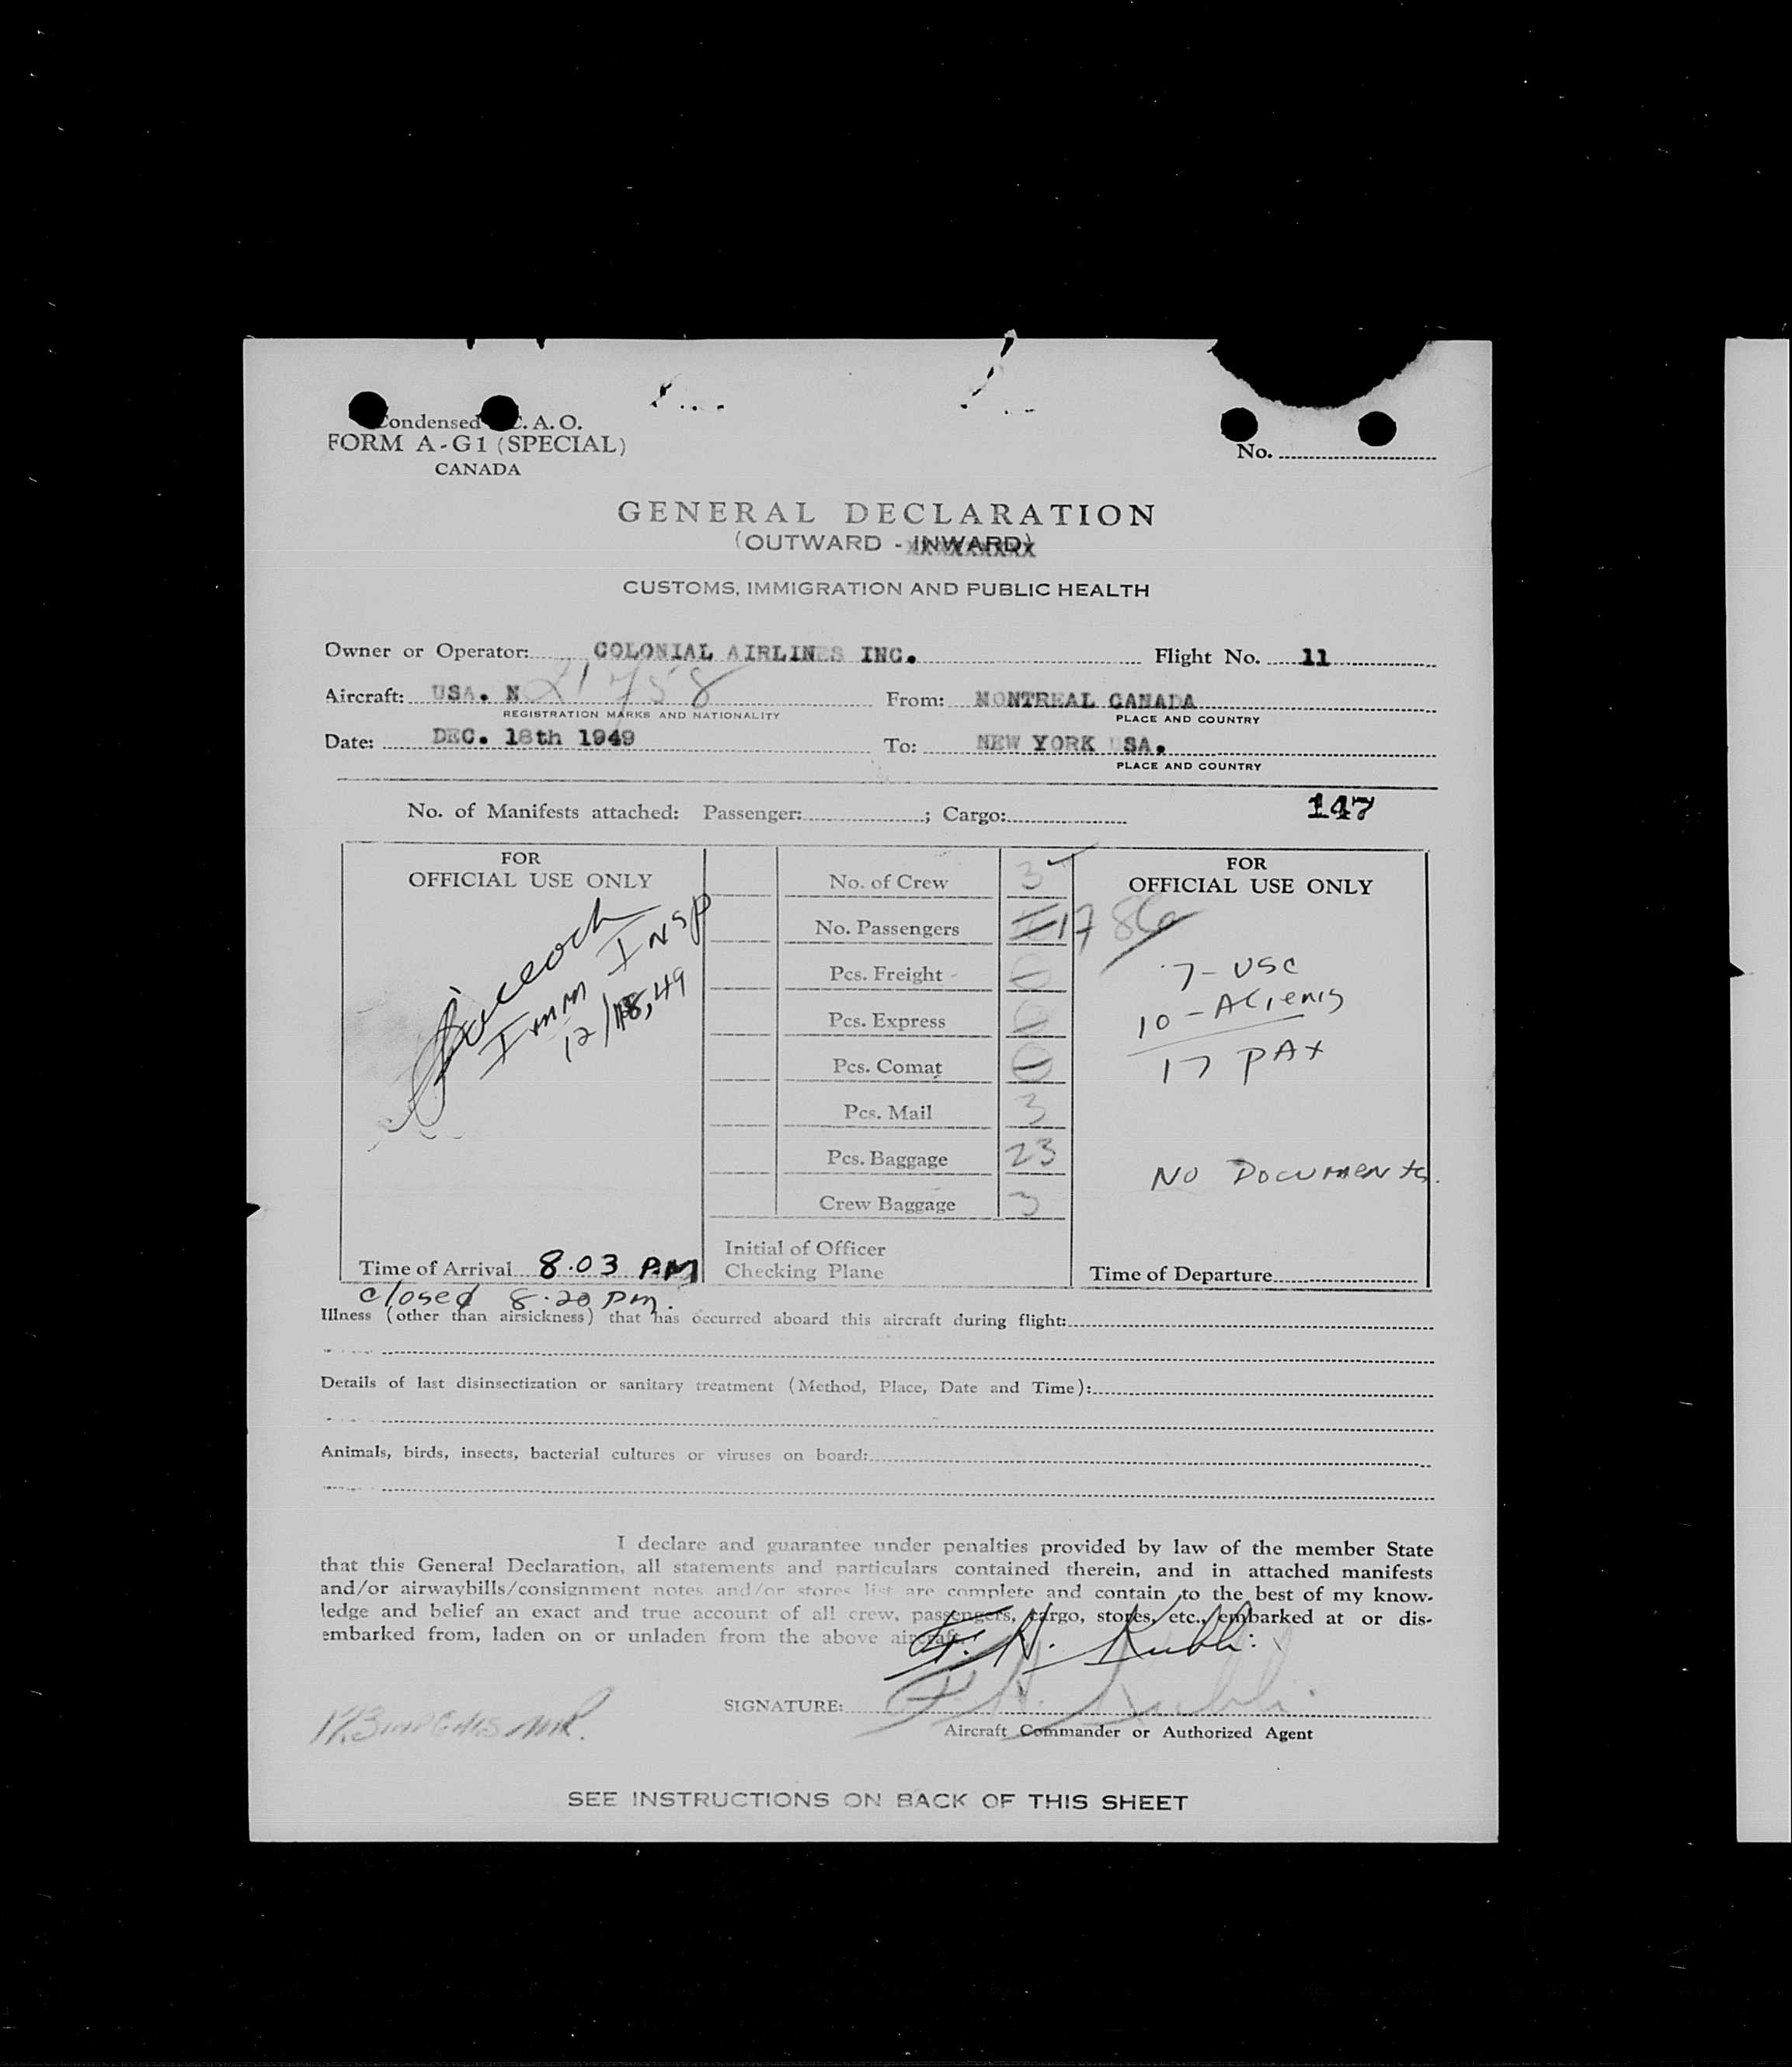 Condensed I.C.A.O.
FORM A-G1 (SPECIAL)
CANADA
No.
GENERAL DECLARATION
(OUTWARD - INWARD)
CUSTOMS, IMMIGRATION AND PUBLIC HEALTH
Owner or Operator: COLONIAL AIRLINES INC. Flight No. 11
Aircraft: USA. N 21758 From: MONTREAL CANADA
REGISTRATION MARKS AND NATIONALITY PLACE AND COUNTRY
Date: DEC. 18th 1949 To: NEW YORK USA.
PLACE AND COUNTRY
No. of Manifests attached: Passenger: ; Cargo: 147
FOR
OFFICIAL USE ONLY
Imm Insp
12/18,49
Time of Arrival 8.03 P.M
closed 8.20 pm.
No. of Crew 3
No. Passengers 17
Pcs. Freight
Pcs. Express
Pcs. Comat
Pcs. Mail 3
Pcs. Baggage 23
Crew Baggage 3
Initial of Officer
Checking Plane
FOR
OFFICIAL USE ONLY
7 - USC
10 - Aliens
17 PAX
NO DOCUMENTS.
Time of Departure
Illness (other than airsickness) that has occurred aboard this aircraft during flight:
Details of last disinsectization or sanitary treatment (Method, Place, Date and Time):
Animals, birds, insects, bacterial cultures or viruses on board:
I declare and guarantee under penalties provided by law of the member State
that this General Declaration, all statements and particulars contained therein, and in attached manifests
and/or airwaybills/consignment notes and/or stores list are complete and contain to the best of my know-
ledge and belief an exact and true account of all crew, passengers, cargo, stores, etc., embarked at or dis-
embarked from, laden on or unladen from the above aircraft.
SIGNATURE:
Aircraft Commander or Authorized Agent
SEE INSTRUCTIONS ON BACK OF THIS SHEET